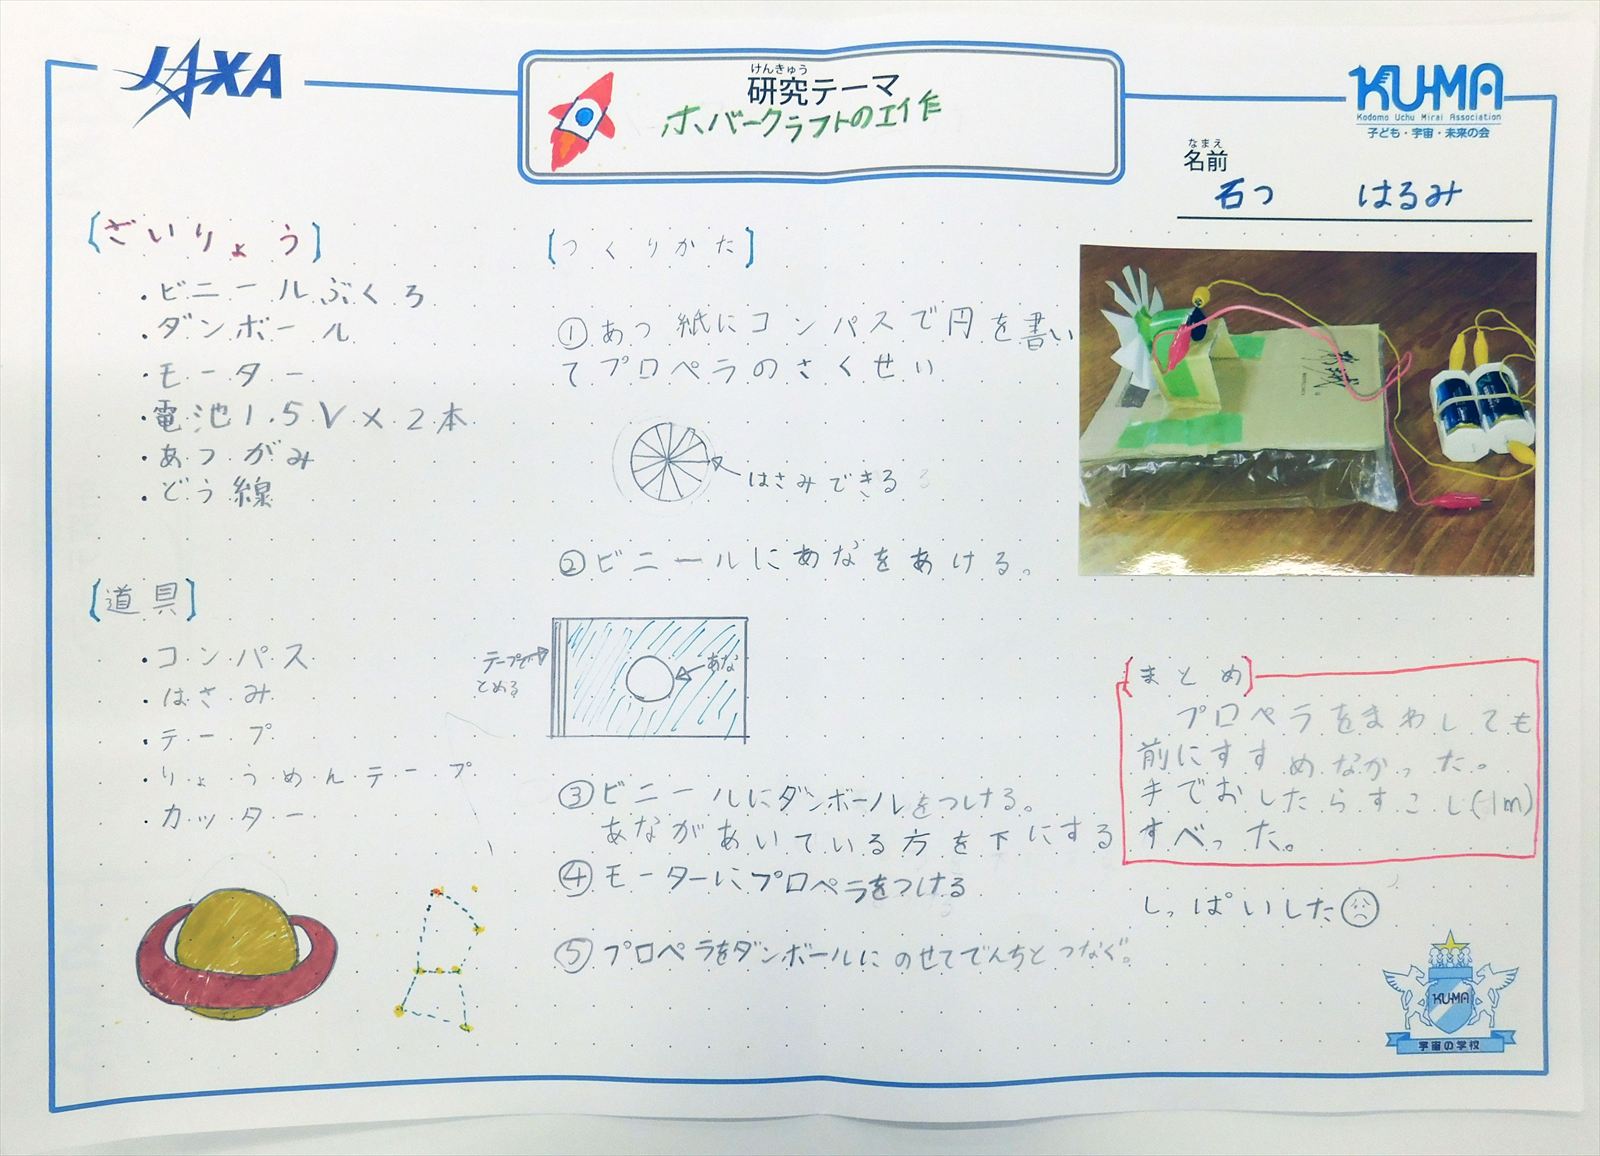 JAXA
けんきゅう
研究テーマ
ホバークラフトの工作
KU-MA
Kodomo Uchu Mirai Association
子ども・宇宙・未来の会
なまえ
名前
石つ はるみ
[ざいりょう]
・ビニールぶくろ
・ダンボール
・モーター
・電池1.5V×2本
・あつがみ
・どう線
[道具]
・コンパス
・はさみ
・テープ
・りょうめんテープ
・カッター
[つくりかた]
①あつ紙にコンパスで円を書い
てプロペラのさくせい
はさみできる
②ビニールにあなをあける。
テープで
とめる
あな
③ビニールにダンボールをつける。
あながあいている方を下にする
④モーターにプロペラをつける
⑤プロペラをダンボールにのせてでんちとつなぐ。
[まとめ]
プロペラをまわしても
前にすすめなかった。
手でおしたらすこし(1m)
すべった。
しっぱいした
KU-MA
宇宙の学校